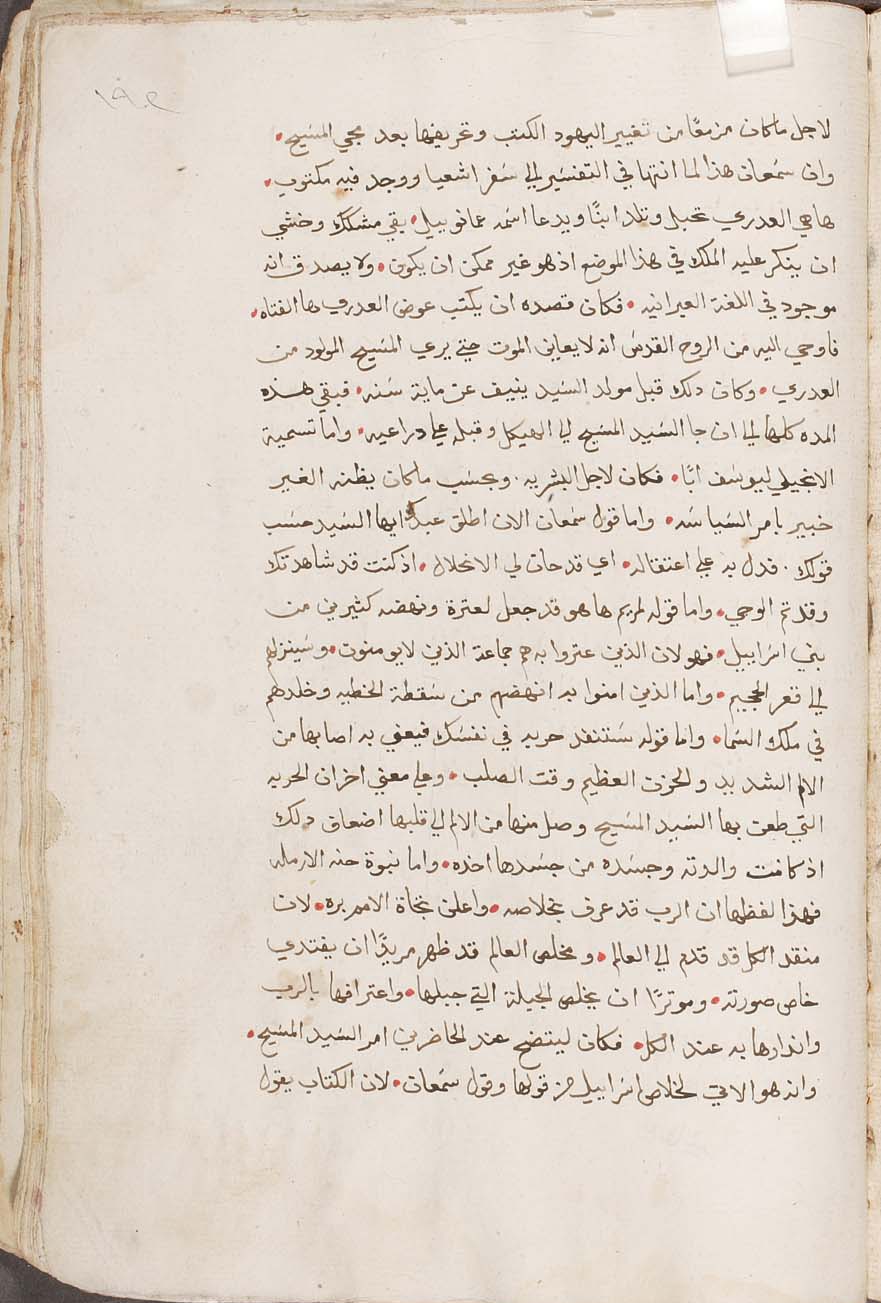 ١٩٢
لاجل ما كان مزمعًا من تغيير اليهود الكتب وتحريفها بعد مجي المسيح •
وان سمعان هذا لما انتها في التفسير الي سفر اشعيا ووجد فيه مكتوب •
ها هي العدري تحبل وتلد ابنًا ويدعا اسمه عمانوييل • بقي مشكك وخشي
ان ينكر عليه الملك في هذا الموضع اذ هو غير ممكن ان يكون • ولا يصدق انه
موجود في اللغة العبرانيه • فكان قصده ان يكتب عوض العدري ها الفتاه •
فاوحي اليه من الروح القدس انه لا يعاين الموت حتي يري المسيح المولود من
العدري • وكان دلك قبل مولد السيد ينيف عن ماية سنه • فبقي هذه
المده كلها الي ان جا السيد المسيح الي الهيكل وقبله علي دراعيه • واما تسمية
الانجيلي ليوسف ابًا • فكان لاجل البشريه · وبحسب ما كان يظنه الغير
خبير بامر السياسه • واما قول سمعان الان اطلق عبدك ايها السيد حسب
قولك · فدل به علي اعتقاله • اي قد حان لي الانحلال • اذ كنت قد شاهدتك
وقد تم الوحي • واما قوله لمريم ها هو قد جعل لعترة ونهضه كثيرين من
بني اسراييل • فهو لان الذين عتروا به هم جماعة الذين لا يومنون • وسينزلهم
الي قعر الجحيم • واما الذين امنوا به انهضهم من سقطة الخطيه وخلدهم
في ملك السما • واما قوله ستنفد حربه في نفسك فيعني به اصابها من
الالم الشديد والحزن العظيم وقت الصلب • وعلي معني اخر ان الحربه
التي طعن بها السيد المسيح وصل منها من الالم الي قلبها اضعاف دلك
اذ كانت والدته وجسده من جسدها اخده • واما نبوة حنه الارمله
فهذا لفظها ان الرب قد عرف بخلاصه • واعلن نجاة الامم بره • لان
منقد الكل قد قدم الي العالم • ومخلص العالم قد ظهر مريدًا ان يفتدي
خاص صورته • وموترًا ان يخلص الجبلة التي جبلها • واعترافها بالرب
واندارها به عند الكل • فكان ليتضح عند الحاضرين امر السيد المسيح •
وانه هو الاتي لخلاص اسراييل من قولها وقول سمعان • لان الكتاب يقول